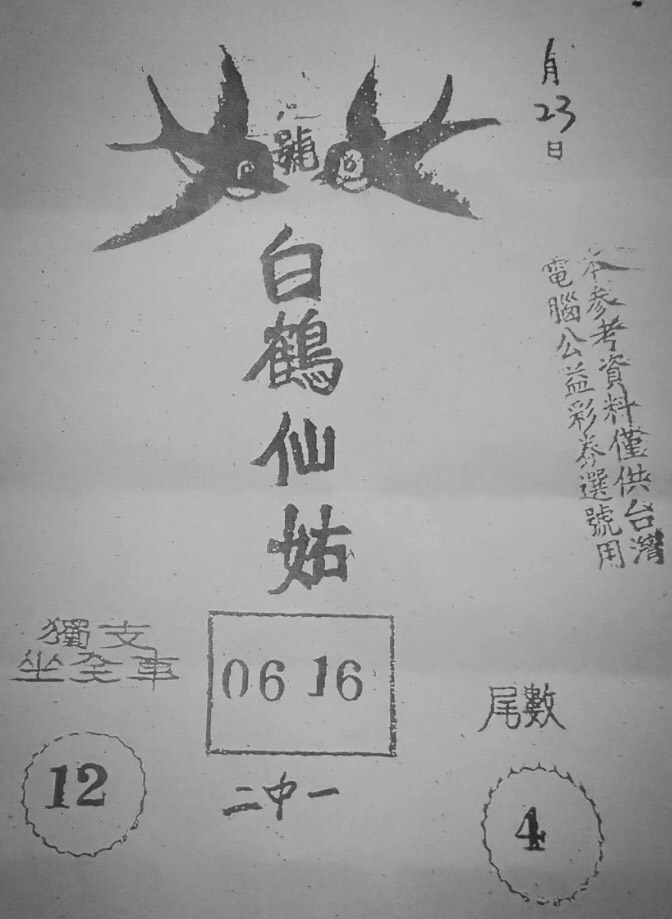 月
23
日
號
白鶴仙姑
本參考資料僅供台灣
電腦公益彩券選號用
獨支
坐全車
12
06 16
二中一
尾數
4